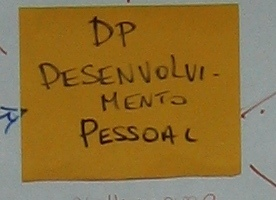 DP
DESENVOLVI-
MENTO
PESSOAL